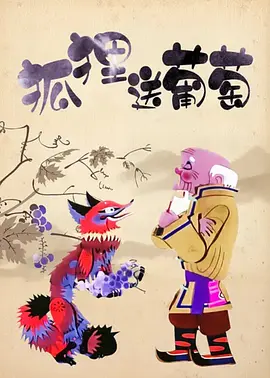 狐狸送葡萄